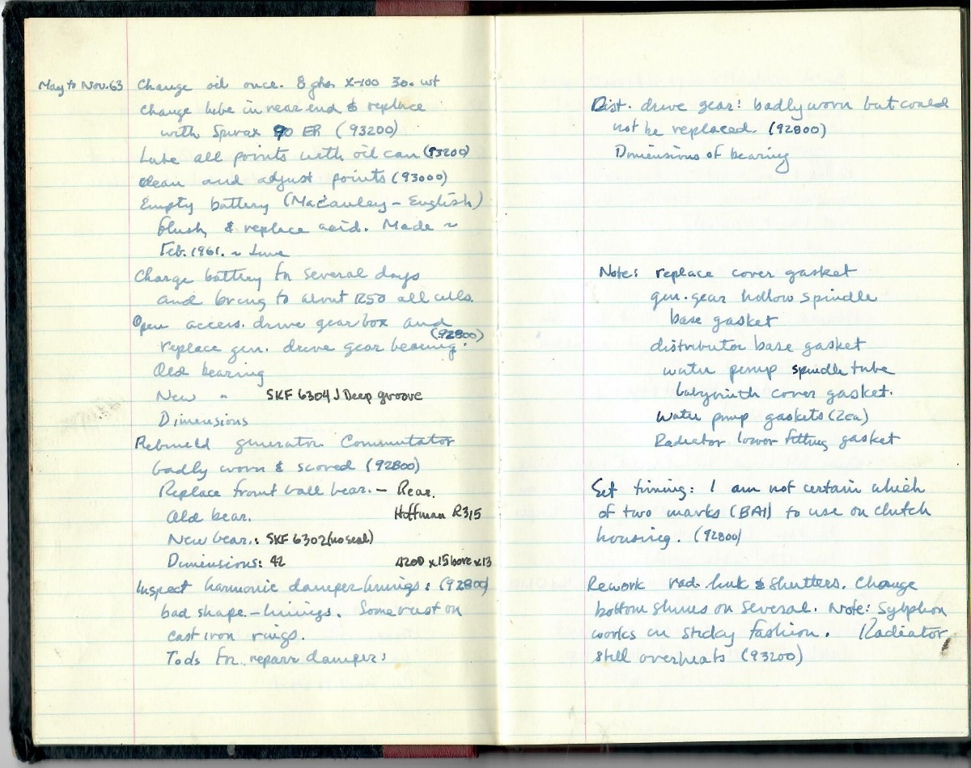 May to Nov. 63 Change oil once. 8 qts. X-100 30. wt
Change lube in rear end & replace
with Spirax 90 EP (93200)
Lube all points with oil can (93200)
Clean and adjust points (93000)
Empty battery (MacCauley - English)
flush & replace acid. Made ~
Feb. 1961. ~ June
Charge battery for several days
and bring to about 1250 all cells.
Open access. drive gearbox and
(92800)
replace gen. drive gear bearing.
Old bearing
New " SKF 6304 J Deep groove
Dimensions
Rebuild generator. Commutator
badly worn & scored (92800)
Replace front ball bear. - Rear.
Old bear. Hoffman R315
New bear.: SKF 6302 (no seal)
Dimensions: 42 42OD x 15 bore x 13
Inspect harmonic damper linings: (92800)
bad shape - linings. Some rust on
cast iron rings.
Tools for repair damper:
Dist. drive gear: badly worn but could
not be replaced. (92800)
Dimensions of bearing
Note: replace cover gasket
gen. gear hollow spindle
base gasket
distributor base gasket
water pump spindle tube
labyrinth cover gasket.
Water pump gaskets (2ea)
Radiator lower fitting gasket
Set timing: I am not certain which
of two marks (BAI) to use on clutch
housing. (92800)
Rework rad. link & shutters. Change
bottom shims on several. Note: Sylphon
works in sticky fashion. Radiator
still overheats (93200)